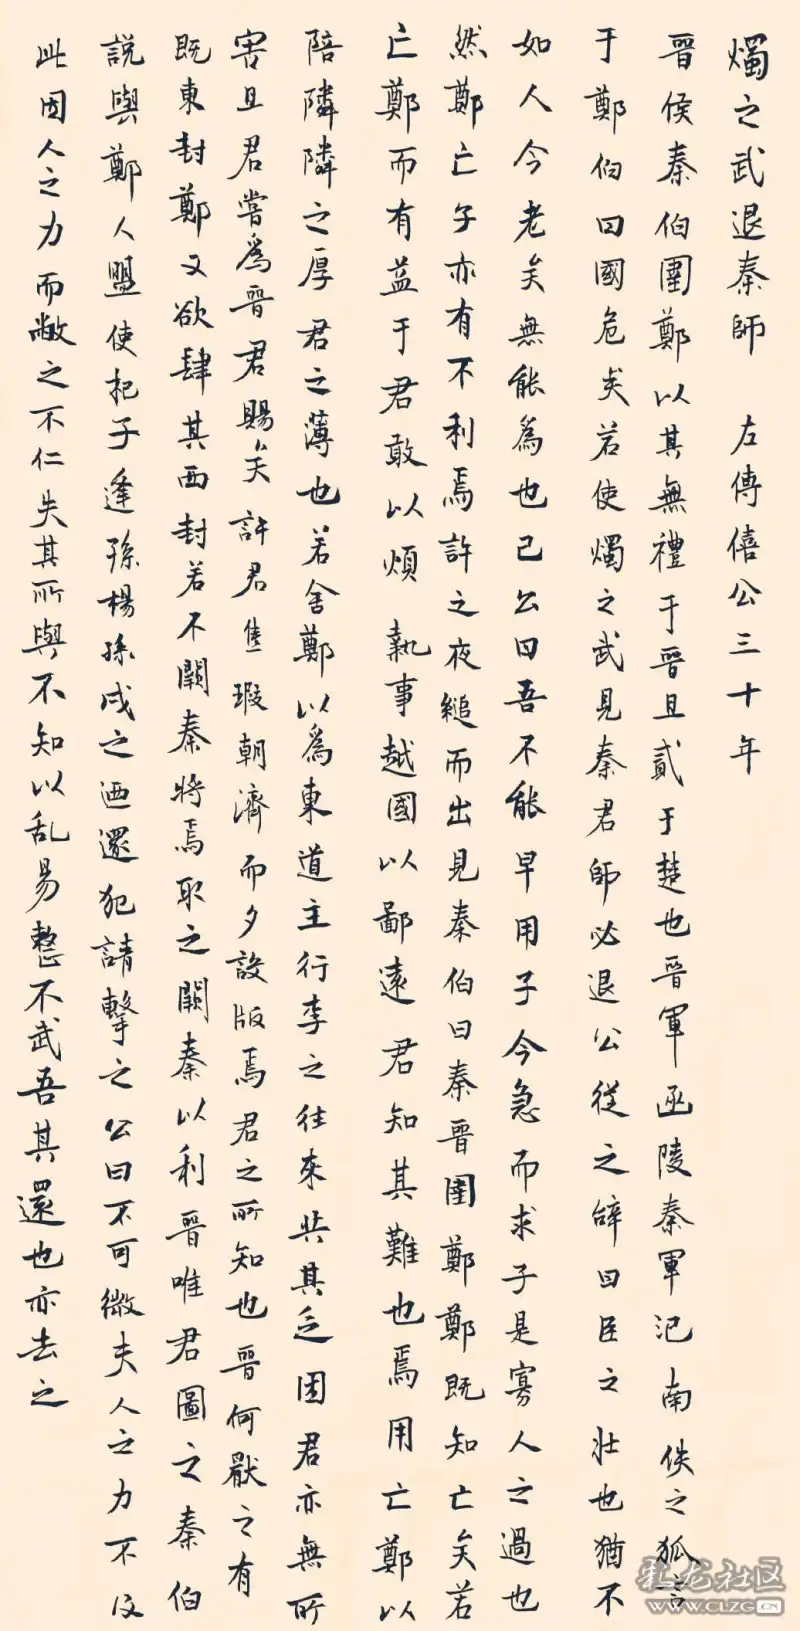 燭之武退秦師 左傳僖公三十年
晉侯秦伯圍鄭以其無禮于晉且貳于楚也晉軍函陵秦軍氾南佚之狐言
于鄭伯曰國危矣若使燭之武見秦君師必退公從之辭曰臣之壯也猶不
如人今老矣無能為也已公曰吾不能早用子今急而求子是寡人之過也
然鄭亡子亦有不利焉許之夜縋而出見秦伯曰秦晉圍鄭鄭既知亡矣若
亡鄭而有益于君敢以煩執事越國以鄙遠君知其難也焉用亡鄭以
陪隣隣之厚君之薄也若舍鄭以為東道主行李之往來共其乏困君亦無所
害且君嘗為晉君賜矣許君焦瑕朝濟而夕設版焉君之所知也晉何厭之有
既東封鄭又欲肆其西封若不闕秦將焉取之闕秦以利晉唯君圖之秦伯
說與鄭人盟使杞子逢孫楊孫戍之迺還犯請擊之公曰不可微夫人之力不及
此因人之力而敝之不仁失其所與不知以乱易整不武吾其還也亦去之
彩龙社区
WWW.CLZG.CN